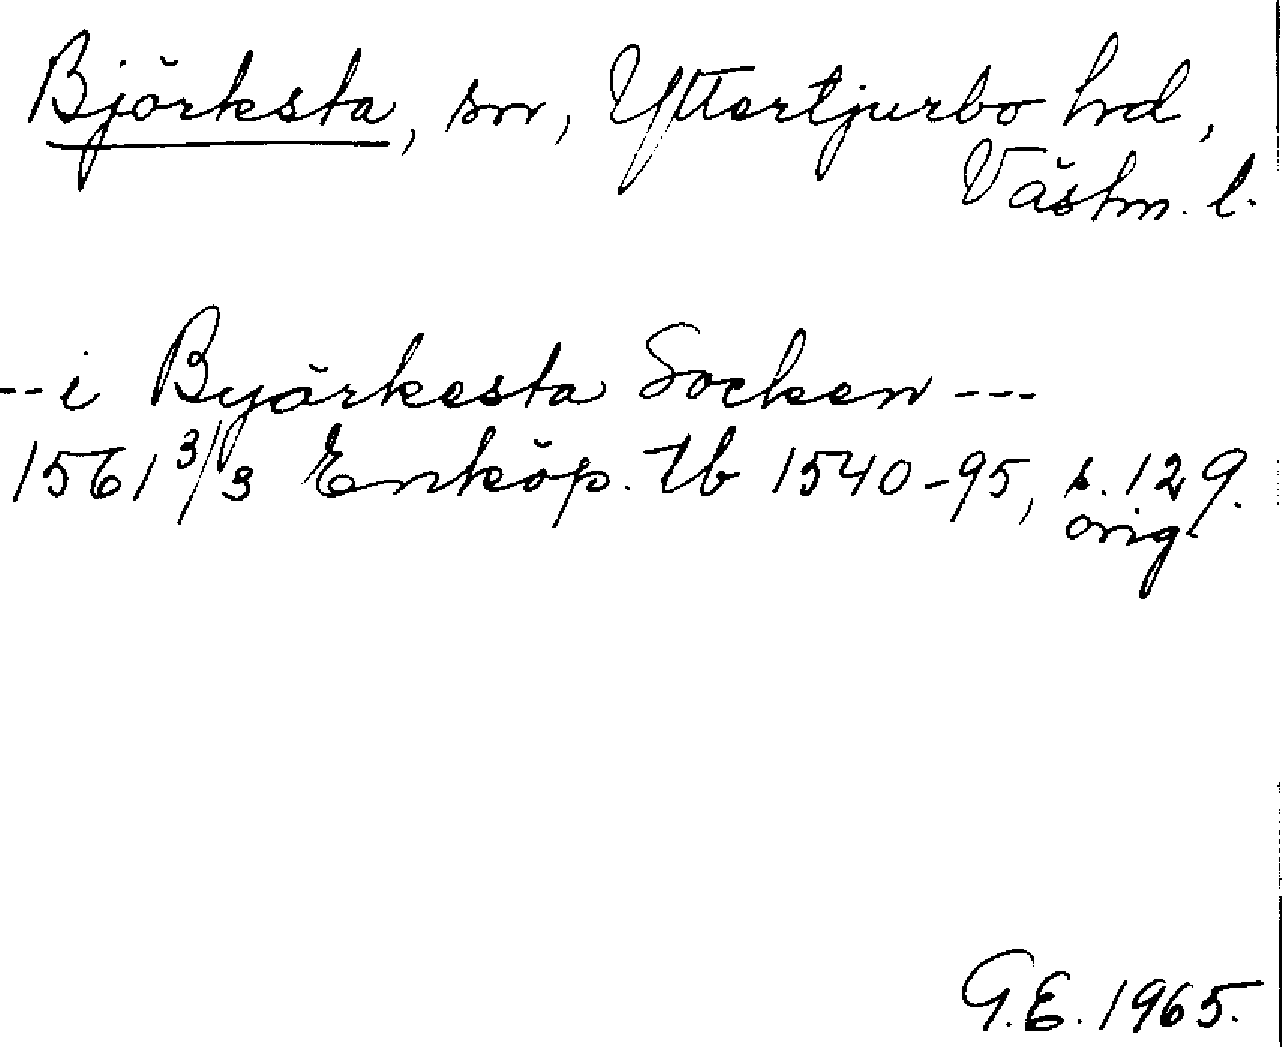 Björksta, sn, Yttertjurbo hd,
Västm. l.
--i Byörkesta Socken ---
1561 3/3 Enköp. tb 1540-95, s. 129.
orig.
G.E. 1965.